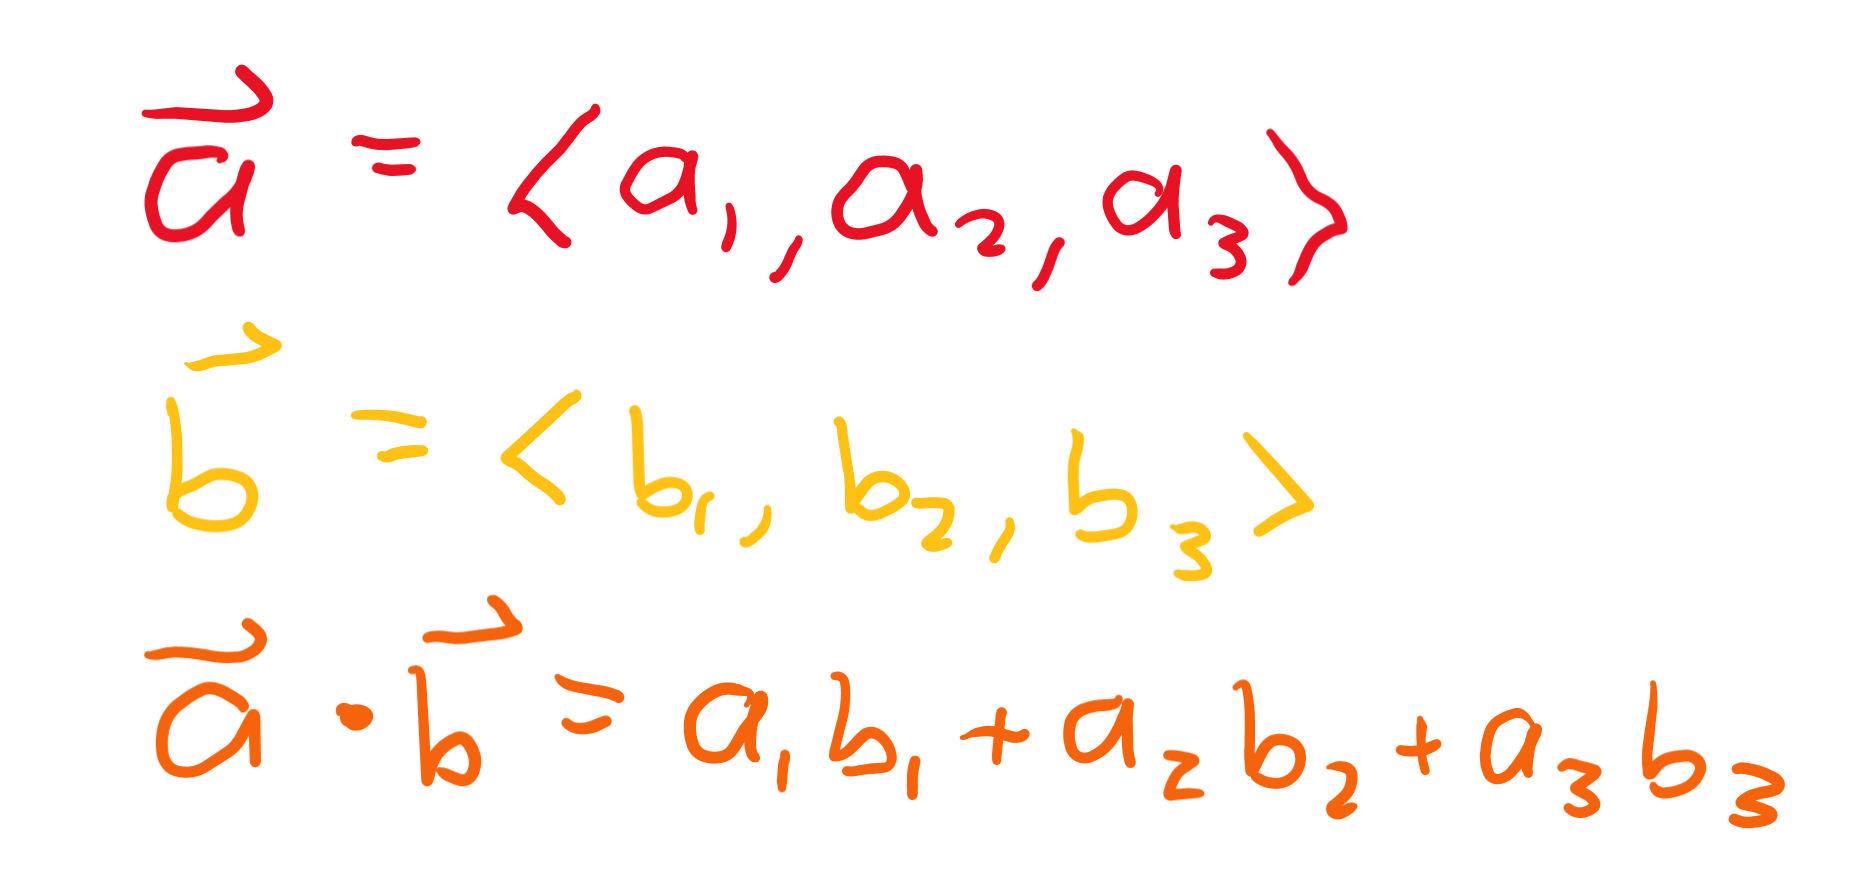 a⃗ = ⟨a₁, a₂, a₃⟩
b⃗ = <b₁, b₂, b₃>
a⃗ · b⃗ = a₁b₁ + a₂b₂ + a₃b₃